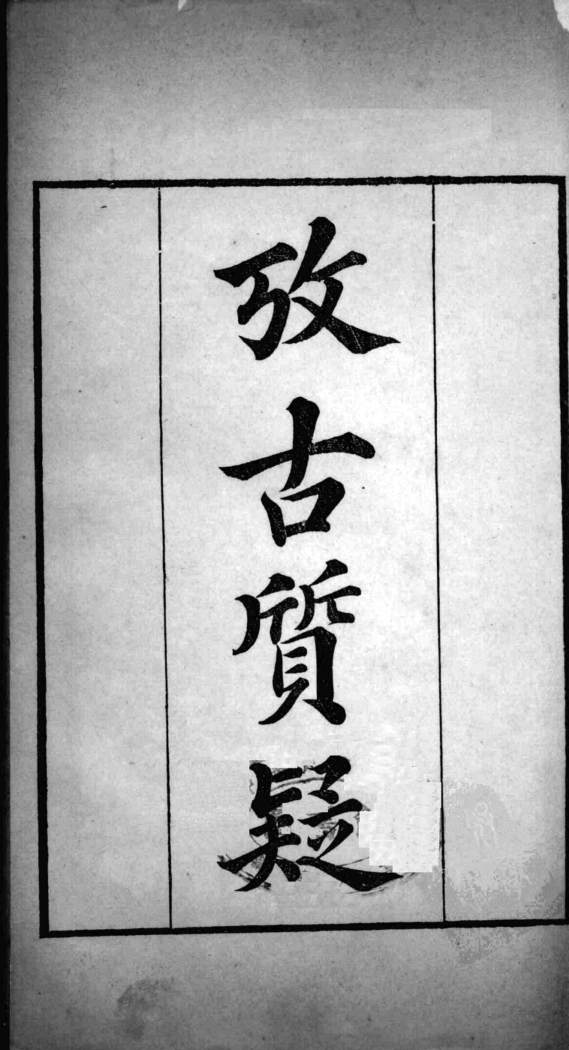 攷古質疑